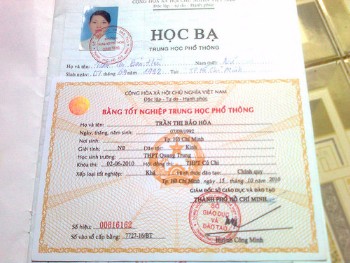 CỘNG HÒA XÃ HỘI CHỦ NGHĨA VIỆT NAM
Độc lập - Tự do - Hạnh phúc
HỌC BẠ
TRUNG HỌC PHỔ THÔNG
Họ và tên Nữ
Sinh ngày 07 1992
CỘNG HÒA XÃ HỘI CHỦ NGHĨA VIỆT NAM
Độc lập - Tự do - Hạnh phúc
BẰNG TỐT NGHIỆP TRUNG HỌC PHỔ THÔNG
Họ và tên: TRẦN THỊ BẢO HÒA
Ngày, tháng, năm sinh:
Nơi sinh: Tp Hồ Chí Minh
Giới tính: Nữ Dân tộc: Kinh
Học sinh trường: THPT Quang Trung
Khóa thi: 02-06-2010 Hội đồng thi: THPT Củ Chi
Xếp loại tốt nghiệp: Khá Chính quy
Tp. Hồ Chí Minh, ngày 15 2010
GIÁM ĐỐC SỞ GIÁO DỤC VÀ ĐÀO TẠO
THÀNH PHỐ HỒ CHÍ MINH
SỞ
GIÁO DỤC
VÀ
ĐÀO TẠO
Số hiệu: 00616162
Số vào sổ cấp bằng: Huỳnh Công Minh